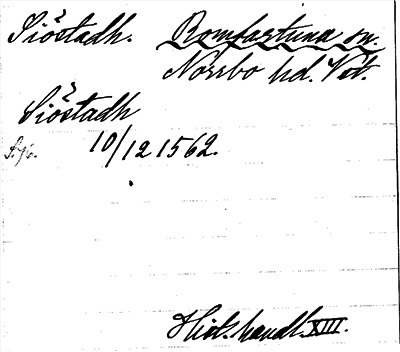 Siöstadh. Romfartuna sn.
Norrbo hd. Vst.
Siöstadh
10/12 1562.
Hist. handl. XIII.